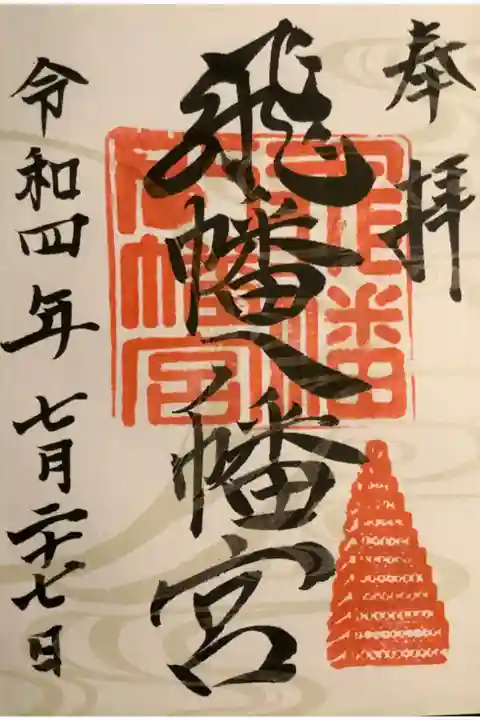 奉拝
飛幡八幡宮
令和四年七月二十七日